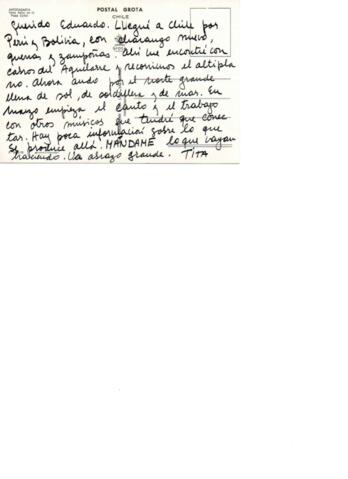 POSTAL GROTA
CHILE
Querido Eduardo. Llegué a Chile por
Perú y Bolivia, con charango nuevo,
quenas y zampoñas. Ahí me encontré con
cabros del Aguilarre y recorrimos el altipla
no. Ahora ando por el norte grande
llena de sol, de cordillera y de mar. En
marzo empieza el canto y el trabajo
con otros músicos que tendré que conec
tar. Hay poca información sobre lo que
se produce allá. MANDAME lo que vayan
haciendo. Un abrazo grande. TITA